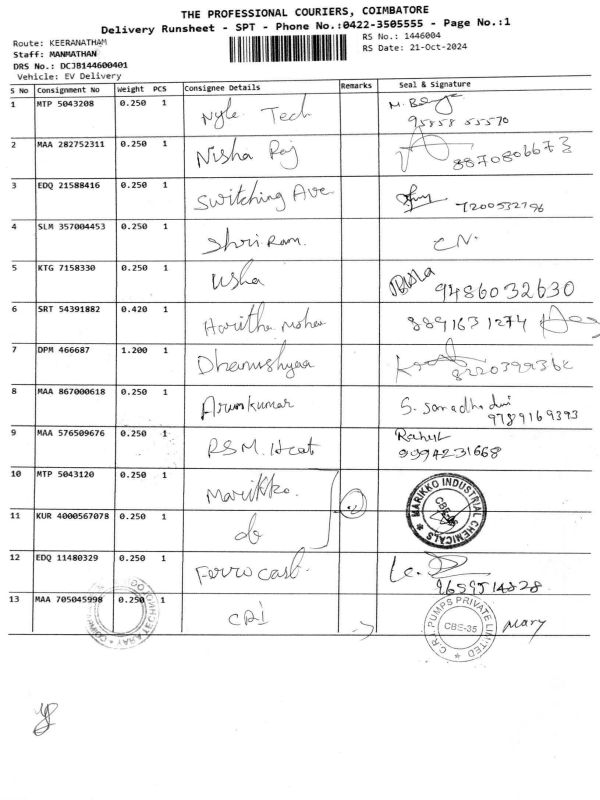 THE PROFESSIONAL COURIERS, COIMBATORE
Delivery Runsheet - SPT - Phone No.:0422-3505555 - Page No.:1
Route: KEERANATHAM RS No.: 1446004
Staff: MANMATHAN RS Date: 21-Oct-2024
DRS No.: DCJB144600401
Vehicle: EV Delivery
S No Consignment No Weight PCS Consignee Details Remarks Seal & Signature
1 MTP 5043208 0.250 1 Nyle Tech
95858 55570
2 MAA 282752311 0.250 1 Nisha Raj 8870806673
3 EDQ 21588416 0.250 1 Switching Ave 7200532796
4 SLM 357004453 0.250 1 Shri Ram. CN.
5 KTG 7158330 0.250 1 Usha 9486032630
6 SRT 54391882 0.420 1 Haritha 8891631274
7 DPM 466687 1.200 1 Dhanushyaa
8 MAA 867000618 0.250 1 Arunkumar
9789169393
9 MAA 576509676 0.250 1 RSM. Heat Rahul
9994231668
10 MTP 5043120 0.250 1 Marikko. 2 MARIKKO INDUSTRIAL CHEMICALS CBE
11 KUR 4000567078 0.250 1 do
12 EDQ 11480329 0.250 1 Ferrocast.
9659514828
13 MAA 705045998 0.250 1 CRI C.R.I. PUMPS PRIVATE LIMITED CBE-35 Mary